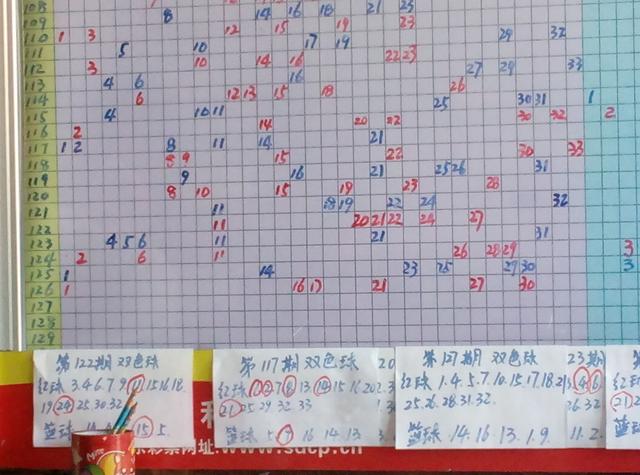 108 8 14 16 18 21 23
109
110 1 3 12 15 19 23
111 5 10 17 19 29 32
112 3 10 14 16 22 23
113 4 6 16 27 29 33
114 6 12 13 15 18 26
115 4 10 11 25 30 31 1
116 2 14 20 22 30 32 2
117 1 2 8 11 14 21
118 8 9 15 22 30 33
119 9 16 21 25 26 31
120 8 10 15 19 23 28
121 11 18 19 22 24 32
122 11 20 21 22 24 27
123 4 5 6 11 21 31
124 2 6 11 26 28 29 3
125 1 14 23 25 30 3
126 1 16 17 21 27 30
127
128
129
第122期 双色球
红球 3.4.6.7.9.11.15.16.18
19.24.25.30.32
篮球 15.5.
第117期 双色球
红球 1.2.7.8.13.14.15.16.20
21.25.29.32.33
篮球 5.7.16.14.13
第127期 双色球
红球 1.4.5.7.10.15.17.18.21
25.26.28.31.32.
篮球. 14.16.13.1.9.
23期
4.6
26.32
11.2.
红球
21
篮球
彩票网址:www.sdcp.cn